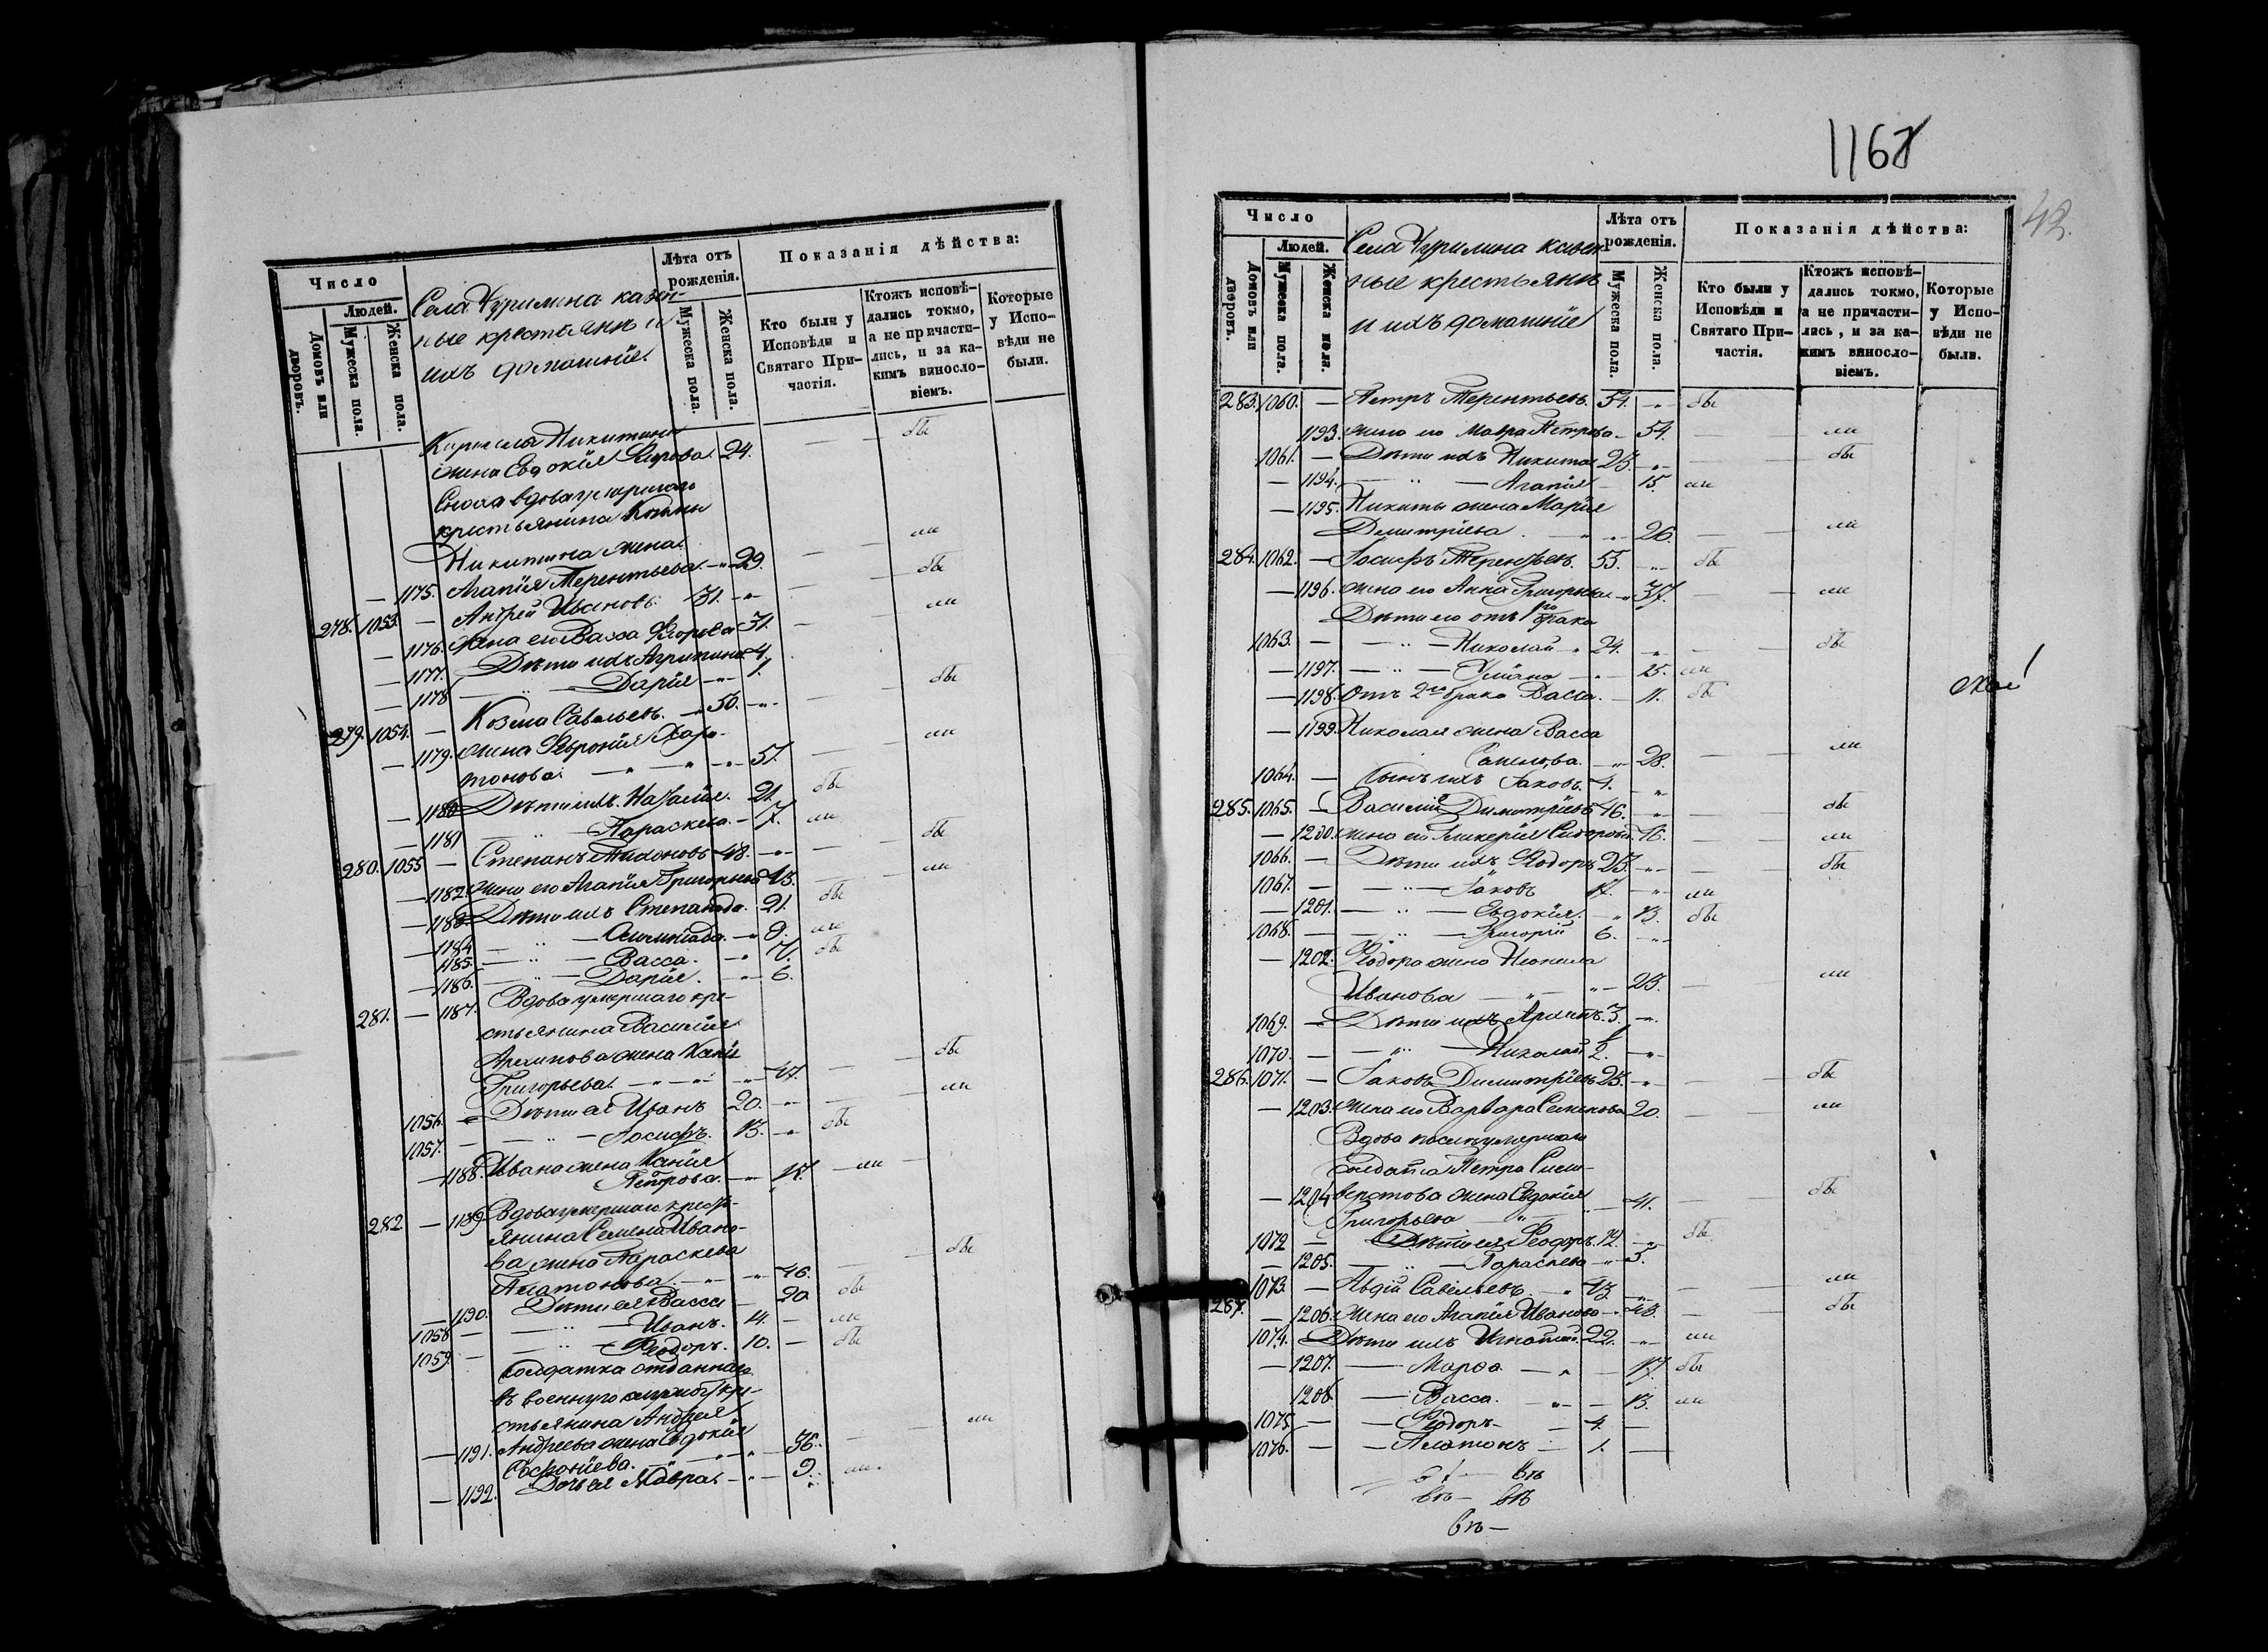 Число
Людей.
Домовъ или дворовъ.
Мужеска пола.
Женска пола.
Села Чурилина казен-
ные крестьяне и
ихъ домашніе.
Лѣта отъ рожденія.
Мужеска пола.
Женска пола.
Показанія дѣйства:
Кто были у Исповѣди и Святаго Причастія.
Ктожъ исповѣ-
дались токмо,
а не причасти-
лись, и за ка-
кимъ винosло-
віемъ.
Которые
у Испо-
вѣди не
были.
Никитина
жена Евдокія 24. бы
вдова умершаго
крестьянина
Никитина жена
— 1175. Агапія Терентьева. 29. ли
278. 1053. — Андрей Ивановъ. 31. бы
— 1176. Жена его Васса 31. ли
— 1177. Дѣти ихъ Агрипина 4.
— 1178 Дарія 1.
279. 1054. — Козма Савельевъ. 50. бы
— 1179. жена Февронія Хари-
тонова 51. ли
— 1180 Дѣти ихъ Наталія. 21. бы
— 1181 Параскева. 17. ли
280. 1055 — Степанъ Тихоновъ 48. бы
— 1182. Жена его Агапія Григорьева 43. ли
— 1183. Дѣти ихъ Степанида. 21. бы
— 1184 Олимпіада. 9. ли
1185. Васса. 7. бы
— 1186. Дарія. 6.
281. — 1187. Вдова умершаго кре-
стьянина Василія
Архипова жена
Григорьева 47. бы
1056. — Дѣти ея Иванъ 20. ли
1057. — Іосифъ. 13. бы
— 1188. Ивана жена
Петрова. 18. ли
282 — 1189 Вдова умершаго кресть-
янина Семена Ивано-
ва жена Параскева
Платонова. 46. бы
— 1190. Дѣти ея Васса 20 бы
1058 — Иванъ. 14. ли
1059. — Ѳеодоръ. 10. бы
Солдатка отданнаго
въ военную службу кре-
стьянина Андрея
— 1191. Андреева жена Евдокія
36. ли
— 1192. Дочь ея Мавра 9. ли.
1168
42.
Число
Людей.
Домовъ или дворовъ.
Мужеска пола.
Женска пола.
Села Чурилина казен-
ные крестьяне
и ихъ домашніе
Лѣта отъ рожденія.
Мужеска пола.
Женска пола.
Показанія дѣйства:
Кто были у
Исповѣди и
Святаго При-
частія.
Ктожъ исповѣ-
дались токмо,
а не причасти-
лись, и за ка-
кимъ винoсло-
віемъ.
Которые
у Испо-
вѣди не
были.
283. 1060. — Петръ Терентьевъ. 54. бы
1193. жена его Мавра Петрова 54. ли
1061. — Дѣти ихъ Никита 23. бы
— 1194. Агапія 15. ли
— 1195. Никиты жена Марія
Димитріева 26. ли
284. 1062. — Іосифъ Терентьевъ. 53. бы
— 1196. жена его Анна Григорьева 37. ли
Дѣти его отъ 1го брака
1063. — Николай 24. бы
— 1197. 25. ли
— 1198. Отъ 2го брака Васса. 11. бы
— 1199. Николая жена Васса
28. ли
1064. — Сынъ ихъ Іаковъ. 4.
285. 1065. — Василій Димитріевъ 46. бы
— 1200. жена его Гликерія Сидорова. 46. ли
1066. — Дѣти ихъ Ѳеодоръ 23. бы
1067. — Іаковъ 17. ли
— 1201. Евдокія. 13. бы
1068. — Григорій 6.
— 1202. Ѳеодора жена Неонила
Иванова 23. ли
1069. — Дѣти ихъ Архипъ. 3.
1070. — Николай 2.
286. 1071. — Іаковъ Димитріевъ 23. бы
— 1203. Жена его Варвара Семенова 20. ли
Вдова умершаго
солдата Петра
— 1204 жена Евдокія
Григорьева 41. бы
1072 — Дѣти ея Ѳеодоръ. 12. бы
— 1205. Параскева 5.
287. 1073. — Авдій Савельевъ 43. ли
— 1206. Жена его Агапія Иванова 43. бы
1074. Дѣти ихъ Игнатій. 22. ли
— 1207. Марѳа 17. бы
1208 Васса. 13. ли
1075. — Ѳеодоръ 4.
1076. — Платонъ 1.